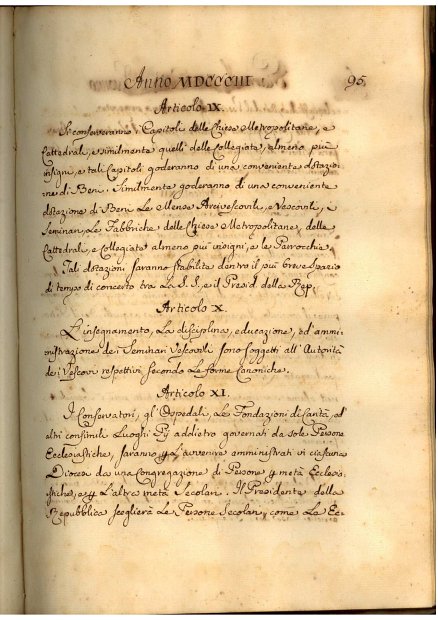 Anno MDCCCIII 95
Articolo IX.
Si conserveranno i Capitoli delle Chiese Metropolitane, e
Cattedrali, e similmente quelli delle Collegiate, almeno più
insigni, e tali Capitoli goderanno di una conveniente dotazio-
ne di Beni. Similmente goderanno di una conveniente
dotazione di Beni Le Mense Arcivescovili, e Vescovili, i
Seminarj, Le Fabbriche delle Chiese Metropolitane, delle
Cattedrali, e Collegiate almeno piu insigni, e le Parrocchie.
Tali dotazioni saranno stabilite dentro il più breve spazio
di tempo di concerto tra La S. S. e il Presid. della Rep.
Articolo X.
L'insegnamento, La disciplina, educazione, ed ammi-
nistrazione dei Seminarj Vescovili sono soggetti all'Autorità
dei Vescovi respettivi secondo Le forme Canoniche.
Articolo XI.
I Conservatorj, gl'Ospedali, Le Fondazioni di Carità, ed
altri consimili Luoghi Pij addietro governati da sole Persone
Ecclesiastiche, saranno in avvenire amministrati in ciascuna
Diocesi da una Congregazione di Persone metà Eccle-
siastiche, e L'altra metà Secolari. Il Presidente della
Repubblica sceglierà Le Persone Secolari, come La Ec-